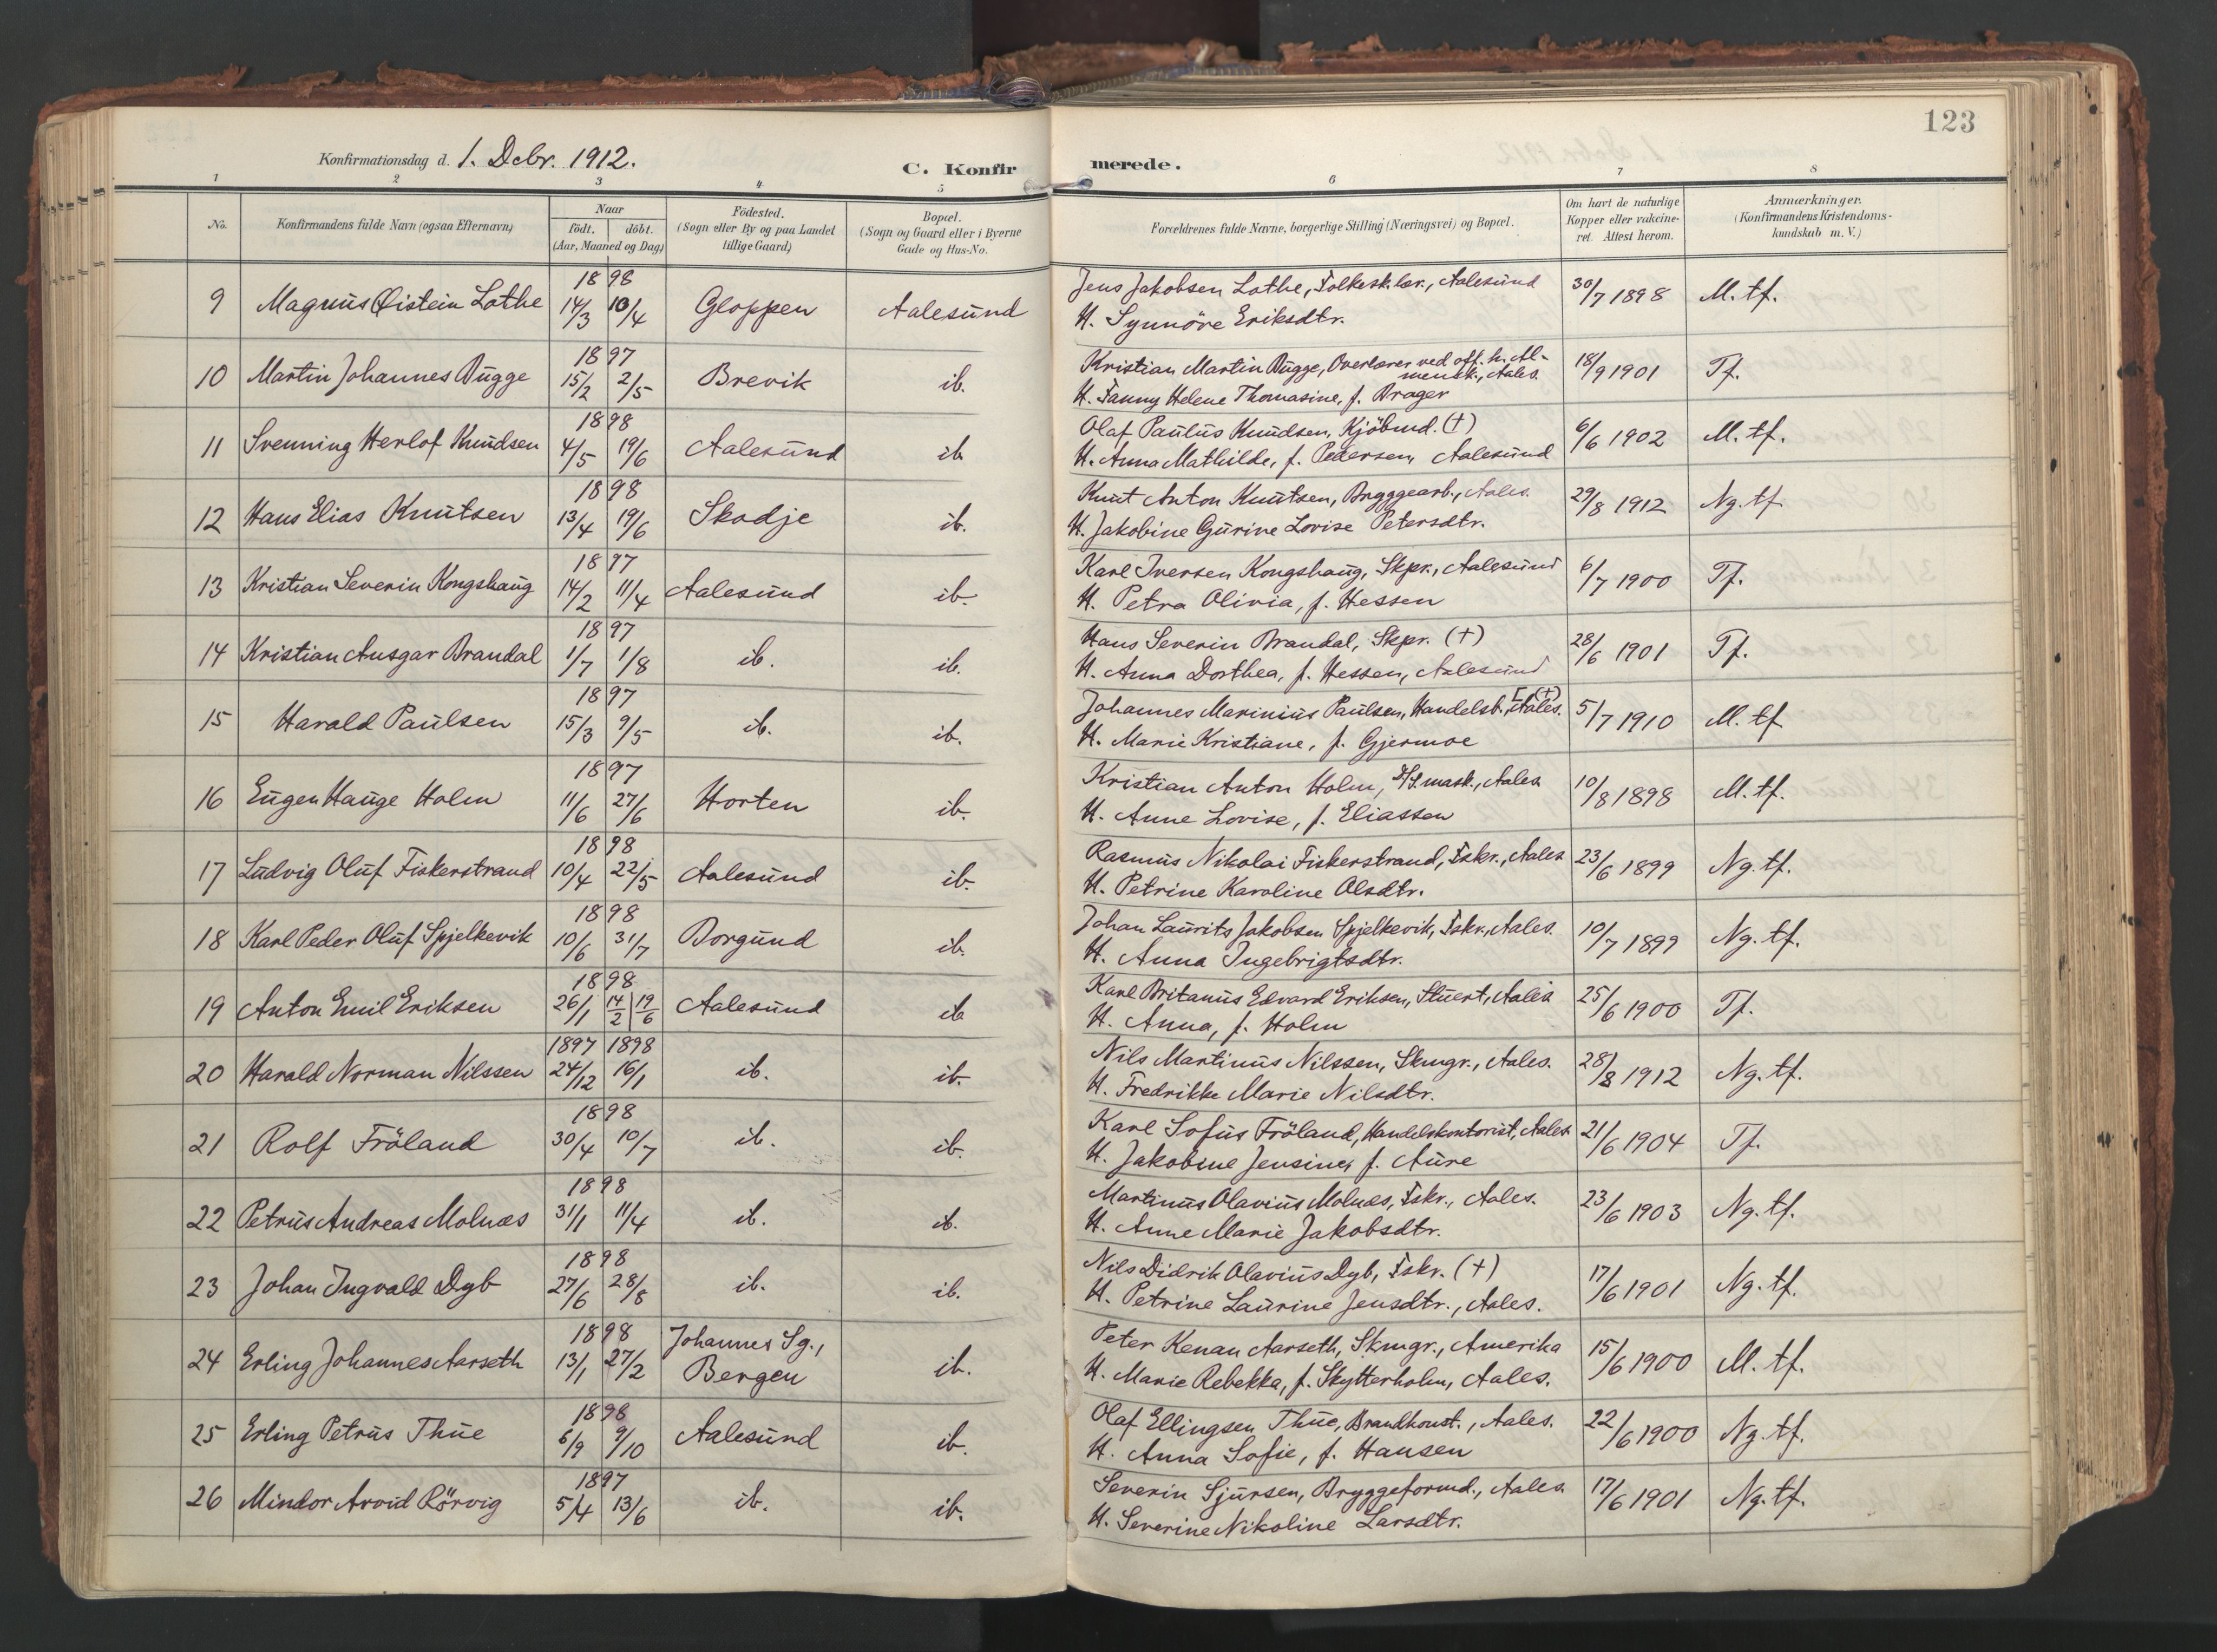 123
Konfirmationsdag d. 1. Decbr. 1912.
C. Konfirmerede.
1 2 3 4 5 6 7 8
No. | Konfirmandens fulde Navn (ogsaa Efternavn) | Naar födt. döbt. (Aar, Maaned og Dag) | Födested. (Sogn eller By og paa Landet tillige Gaard) | Bopæl. (Sogn og Gaard eller i Byerne Gade og Hus-No. | Forældrenes fulde Navne, borgerlige Stilling (Næringsvei) og Bopæl. | Om havt de naturlige Kopper eller vakcineret. Attest herom. | Anmærkninger. (Konfirmandens Kristendomskundskab m. V.)
1898
9 Magnus Øistein Lothe 14/3 10/4 Gloppen Aalesund Jens Jakobsen Lothe, Folkesk.lær., Aalesund 30/7 1898 M. tf.
H. Synnöve Eriksdtr.
1897
10 Martin Johannes Bugge 15/2 2/5 Brevik ib. Kristian Martin Bugge, Overlærer ved off. h. Almensk., Aales. 18/9 1901 Tf.
H. Fanny Helene Thomasine, f. Brager
1898
11 Svenning Herlof Knudsen 4/5 19/6 Aalesund ib Olaf Paulus Knudsen, Kjöbmd. (+) 6/6 1902 M. tf.
H. Anna Mathilde, f. Pedersen, Aalesund
1898
12 Hans Elias Knutsen 13/4 19/6 Skodje ib. Knut Anton Knutsen, Bryggearb., Aales. 29/8 1912 Ng. tf.
H. Jakobine Gurine Lovise Petersdtr.
1897
13 Kristian Severin Kongshaug 14/2 11/4 Aalesund ib. Karl Iversen Kongshaug, Skpr., Aalesund 6/7 1900 Tf.
H. Petra Olivia, f. Hessen
1897
14 Kristian Ansgar Brandal 1/7 1/8 ib. ib. Hans Severin Brandal, Skpr. (+) 28/6 1901 Tf.
H. Anna Dorthea, f. Hessen, Aalesund
1897
15 Harald Paulsen 15/3 9/5 ib. ib. Johannes Marinius Paulsen, Handelsb., Aales. (+) 5/7 1910 M. tf
H. Marie Kristiane, f. Gjermoe
1897
16 Eugen Hauge Holm 11/6 27/6 Horten ib. Kristian Anton Holm, D/S.mask., Aales. 10/8 1898 M. tf.
H. Anne Lovise, f. Eliassen
1898
17 Ludvig Oluf Fiskerstrand 10/4 22/5 Aalesund ib. Rasmus Nikolai Fiskerstrand, Fskr., Aales 23/6 1899 Ng. tf.
H. Petrine Karoline Olsdtr.
1898
18 Karl Peder Oluf Spjelkevik 10/6 31/7 Borgund ib. Johan Laurits Jakobsen Spjelkevik, Fskr., Aales. 10/7 1899 Ng. tf.
H. Anna Ingebrigtsdtr.
1898
19 Anton Emil Eriksen 26/1 14/2 | 19/6 Aalesund ib Karl Britanus Edvard Eriksen, Stuert, Aales. 25/6 1900 Tf.
H. Anna, f. Holm
1897 1898
20 Harald Norman Nilssen 24/12 16/1 ib. ib. Nils Martinus Nilssen, Skmgr., Aales. 28/8 1912 Ng. tf.
H. Fredrikke Marie Nilsdtr.
1898
21 Rolf Fröland 30/4 10/7 ib. ib. Karl Sofus Fröland, Handelskontorist, Aales. 21/6 1904 Tf.
H. Jakobine Jensine, f. Aure
1898
22 Petrus Andreas Molnæs 31/1 11/4 ib. ib. Martinus Olavius Molnæs, Fskr., Aales. 23/6 1903 Ng. tf.
H. Anne Marie Jakobsdtr.
1898
23 Johan Ingvald Dyb 27/6 28/8 ib. ib. Nils Didrik Olavius Dyb, Fskr. (+) 17/6 1901 Ng. tf.
H. Petrine Laurine Jensdtr., Aales.
1898
24 Erling Johannes Aarseth 13/1 27/2 Johannes Sg., Bergen ib. Peter Kenan Aarseth, Skmgr., Amerika 15/6 1900 M. tf.
H. Marie Rebekka, f. Skytterholm, Aales.
1898
25 Erling Petrus Thue 6/9 9/10 Aalesund ib. Olaf Ellingsen Thue, Brandkonst., Aales. 22/6 1900 Ng. tf.
H. Anna Sofie, f. Hansen
1897
26 Mindor Arvid Rörvig 5/4 13/6 ib. ib. Severin Sjursen, Bryggeformd., Aales. 17/6 1901 Ng. tf.
H. Severine Nikoline Larsdtr.